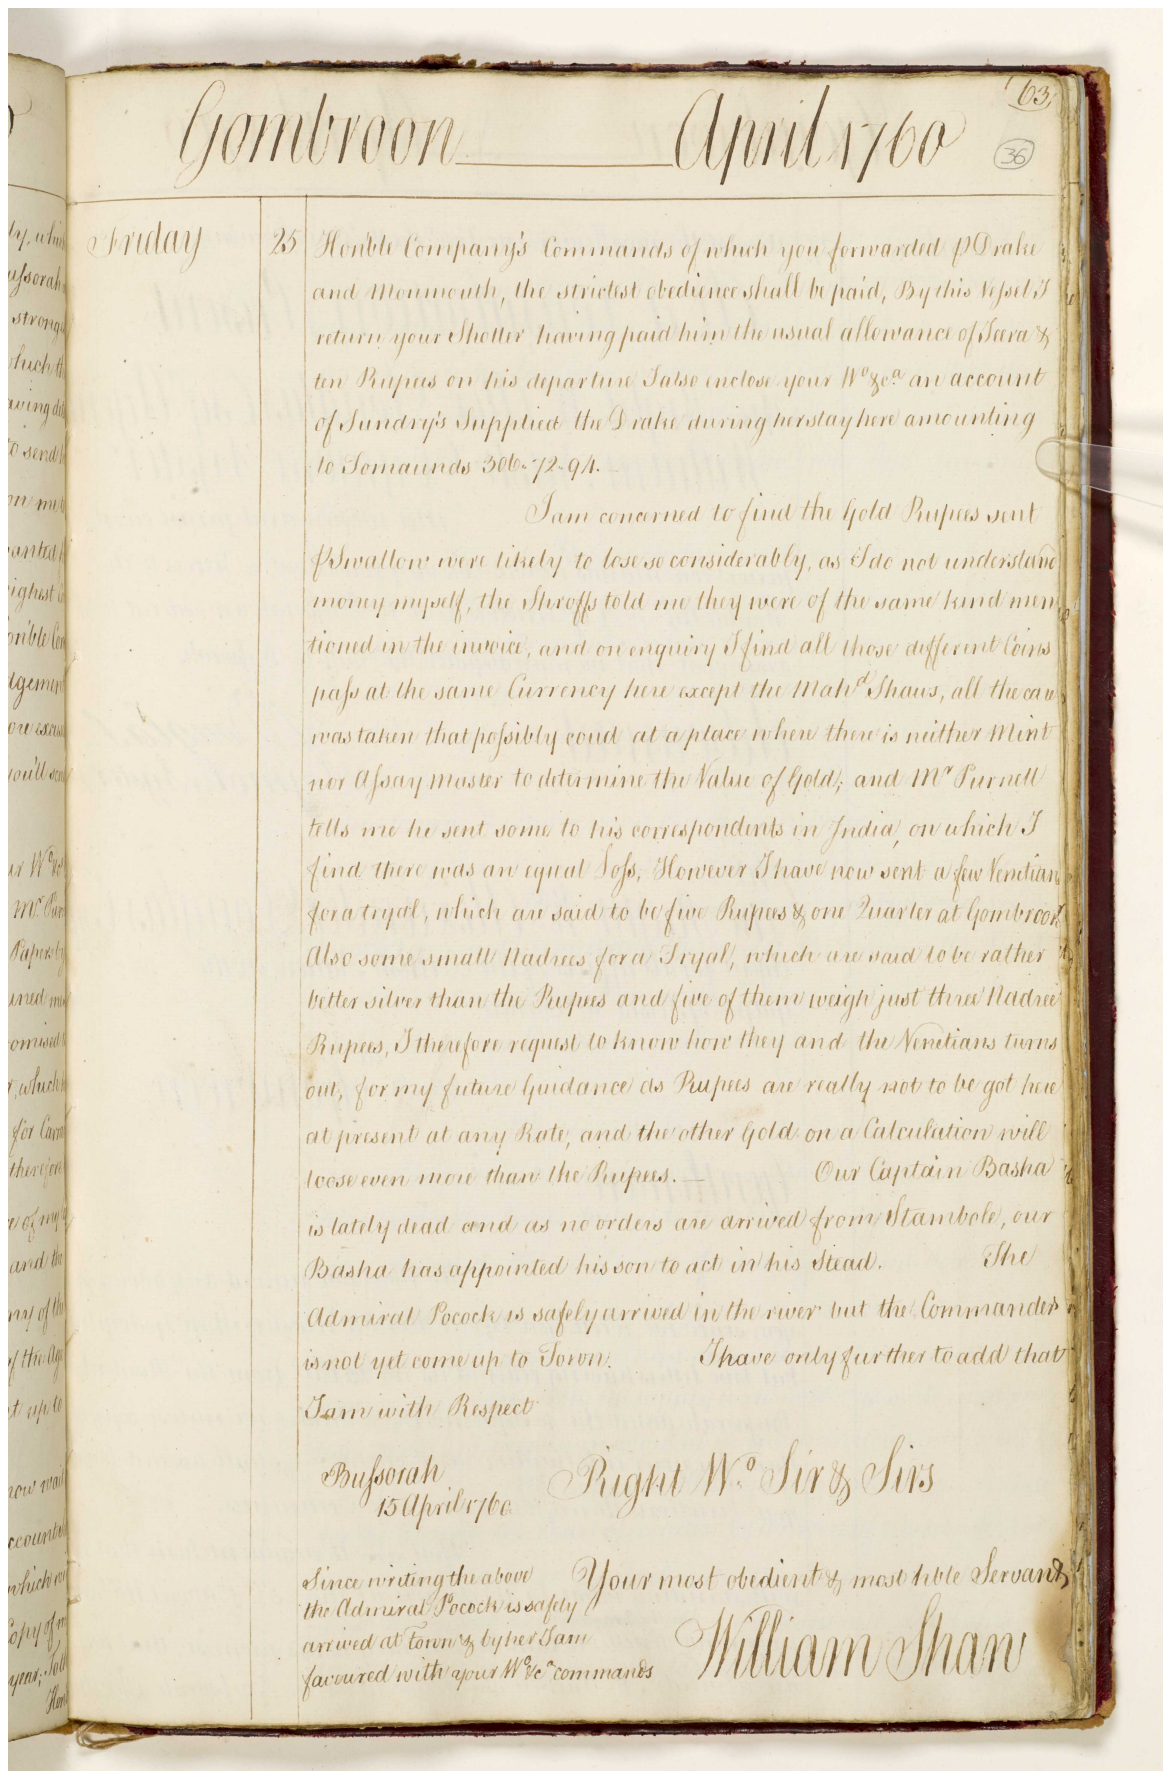 63
Gombroon April 1760
36
Friday 25 Honble Company's Commands of which you forwarded ⅌ Drake
and Monmouth, the strictest obedience shall be paid, By this Vessel I
return your Shotter having paid him the usual allowance of Jeera &
ten Rupees on his departure I also enclose your Wo. &ca. an account
of Sundry's Supplied the Drake during her stay here amounting
to Tomaunds 306.. 72.. 94. —
I am concerned to find the Gold Rupees sent
⅌ Swallow were likely to lose so considerably, as I do not understand
money myself, the Shroffs told me they were of the same kind men
tioned in the invoice, and on enquiry I find all those different Coins
pass at the same Currency here except the Mahd. Shaus, all the care
was taken that possibly coud at a place where there is neither Mint
nor Assay Master to determine the Value of Gold; and Mr Purnell
tells me he sent some to his correspondents in India, on which I
find there was an equal Loss, However I have now sent a few Venetians
for a tryal, which are said to be five Rupees & one Quarter at Gombroon
Also some small Nadrees for a Tryal, which are said to be rather
better silver than the Rupees and five of them weigh just three Nadree
Rupees, I therefore request to know how they and the Venetians turns
out, for my future Guidance as Rupees are really not to be got here
at present at any Rate, and the other Gold on a Calculation will
loose even more than the Rupees. — Our Captain Basha
is lately dead and as no orders are arrived from Stambole, our
Basha has appointed his son to act in his Stead. The
Admiral Pocock is safely arrived in the river but the Commander
is not yet come up to Town. I have only further to add that
I am with Respect
Bussorah Right Wo. Sir & Sirs
15 April 1760
Since writing the above Your most obedient & most hble Servant
the Admiral Pocock is safely
arrived at Town & by her I am William Shaw
favoured with your Wo. &ca commands